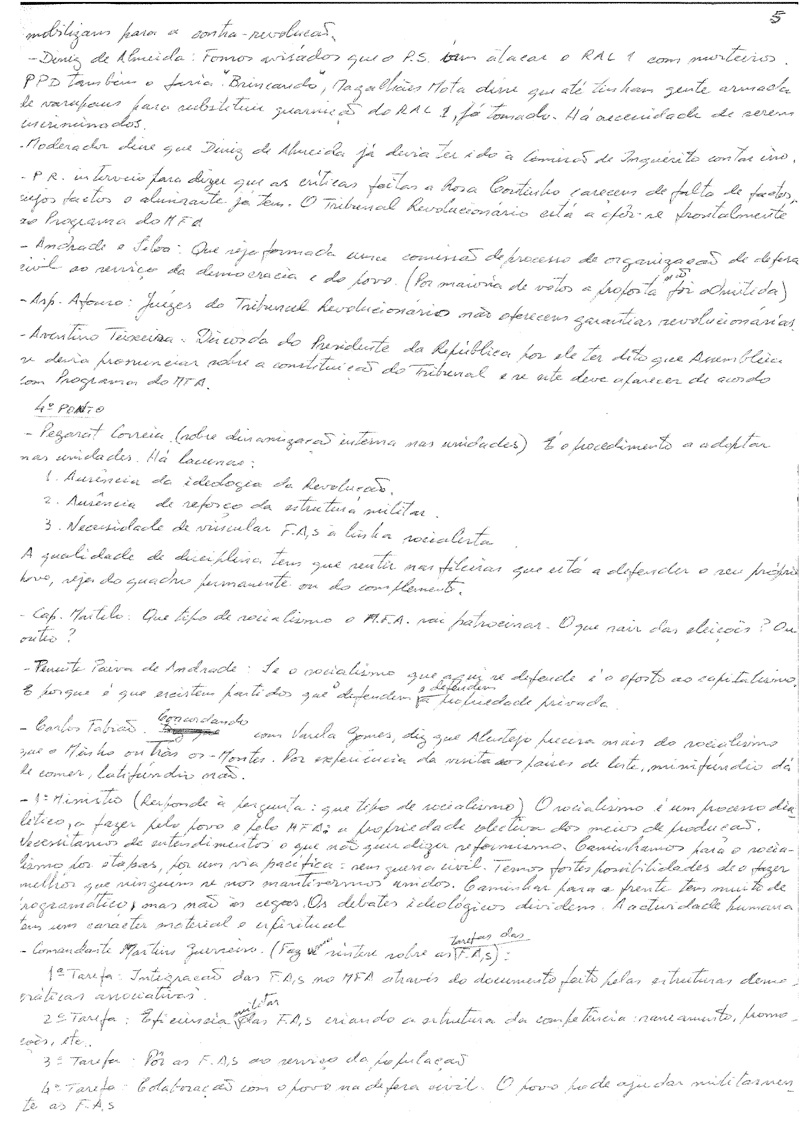 5
mobilizam para a contra-revolução.
- Diniz de Almeida: Fomos avisados que o P.S. iam atacar o RAL 1 com morteiros.
PPD também o faria "Brincando", Magalhães Mota disse que até tinham gente armada
de varapaus para substituir guarnição do RAL 1, já tomado. Há necessidade de serem
incriminados.
- Moderador disse que Diniz de Almeida já devia ter ido à Comissão de Inquérito contar isso.
- P.R. interveio para dizer que as críticas feitas a Rosa Coutinho carecem de falta de factos,
cujos factos o almirante já tem. O Tribunal Revolucionário está a opôr-se frontalmente
ao Programa do MFA.
- Andrade e Silva: Que seja formada uma comissão de processo de organização de defesa
civil ao serviço da democracia e do povo. (Por maioria de votos a proposta não foi admitida)
- Asp. Afonso: Juízes do Tribunal Revolucionário não oferecem garantias revolucionárias.
- Aventino Teixeira - Discorda do Presidente da República por ele ter dito que Assembleia
se devia pronunciar sobre a constituição do Tribunal e se este deve aparecer de acordo
com Programa do MFA.
4º PONTO
- Pezarat Correia (sobre dinamização interna nas unidades) É o procedimento a adoptar
nas unidades. Há lacunas:
1. Ausência da ideologia da Revolução.
2. Ausência de reforço da estrutura militar.
3. Necessidade de vincular F.A,s à linha socialista
A qualidade de disciplina tem que sentir nas fileiras que está a defender o seu próprio
povo, seja do quadro permanente ou do complemento.
- Cap. Martelo: Que tipo de socialismo o M.F.A. vai patrocinar. O que sair das eleições? Ou
outro?
- Tenente Paiva de Andrade: Se o socialismo que aqui se defende é o oposto ao capitalismo.
E porque é que existem partidos que o defendem e defendem a propriedade privada.
- Carlos Fabião Concordando com Varela Gomes, diz que Alentejo precisa mais do socialismo
que o Minho ou Trás os-Montes. Por experiência da visita aos países de leste, minifúndio dá
de comer, latifúndio não.
- 1º Ministro (Responde à pergunta: que tipo de socialismo) O socialismo é um processo dia-
léctico, a fazer pelo povo e pelo MFA: a propriedade colectiva dos meios de produção.
Necessitamos de entendimentos o que não quer dizer reformismo. Caminhamos para o socia-
lismo por etapas, por um via pacífica: sem guerra civil. Temos fortes possibilidades de o fazer
melhor que ninguém se nos mantivermos unidos. Caminhar para a frente tem muito de
programático, mas não às cegas. Os debates ideológicos dividem. A actividade humana
tem um carácter material e espiritual
- Comandante Martins Guerreiro. (Faz síntese sobre as tarefas das F.A,s):
1ª Tarefa: Integração das F.A,s no MFA através do documento feito pelas estruturas demo-
cráticas associativas.
2ª Tarefa: Eficiência militar das F.A,s criando a estrutura da competência: saneamento, promo-
ções, etc.
3ª Tarefa: Pôr as F.A,s ao serviço da população
4ª Tarefa: Colaboração com o povo na defesa civil. O povo pode ajudar militarmen-
te as F.A,s